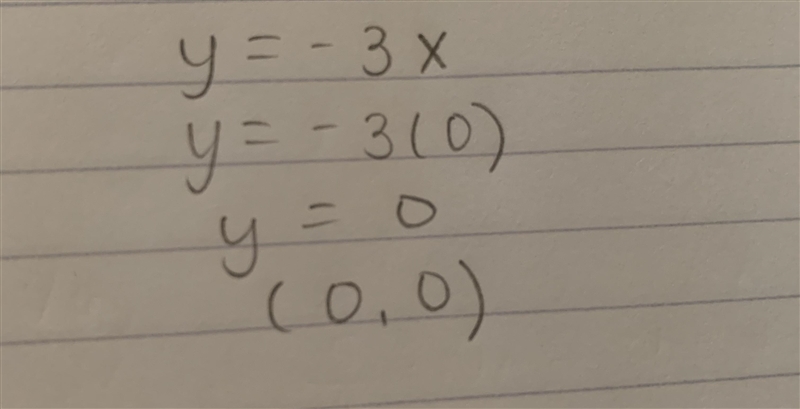 y = - 3 x
y = - 3 ( 0 )
y = 0
( 0 , 0 )